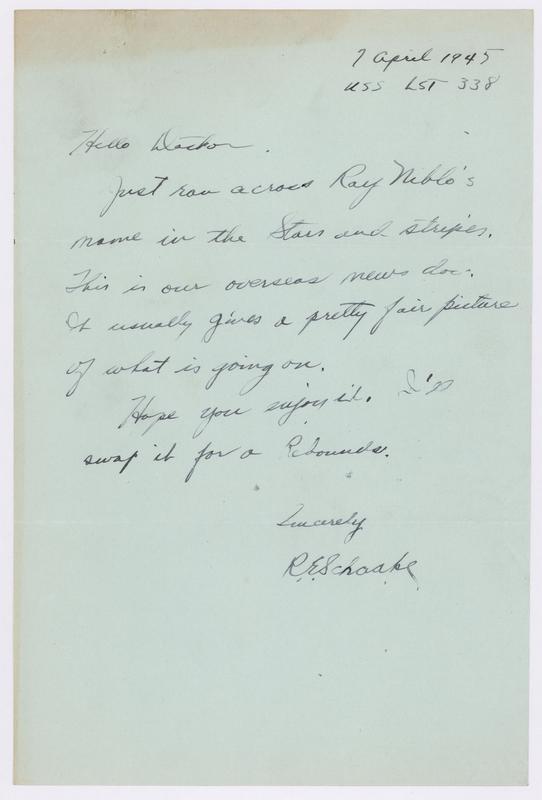 7 April 1945
USS LST 338
Hello Doctor.
Just ran across Ray Niblo's
name in the Stars and stripes.
This is our overseas news doc.
It usually gives a pretty fair picture
of what is going on.
Hope you enjoy it. I'll
swap it for a Rebounds.
Sincerely
R.E. Schaake